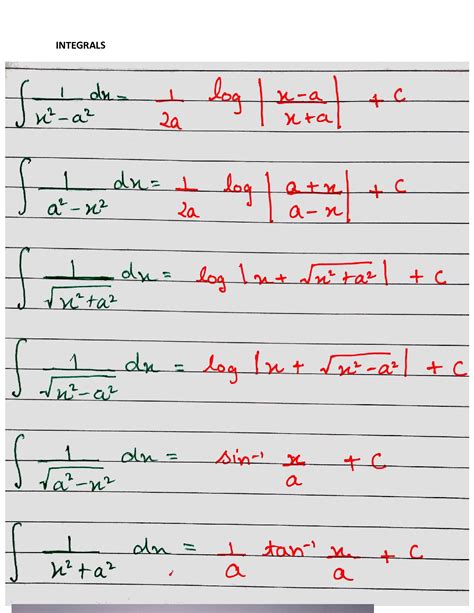 INTEGRALS
∫ 1/(x²-a²) dx = 1/2a log |(x-a)/(x+a)| + C
∫ 1/(a²-x²) dx = 1/2a log |(a+x)/(a-x)| + C
∫ 1/√(x²+a²) dx = log |x + √(x²+a²)| + C
∫ 1/√(x²-a²) dx = log |x + √(x²-a²)| + C
∫ 1/√(a²-x²) dx = sin⁻¹ x/a + C
∫ 1/(x²+a²) dx = 1/a tan⁻¹ x/a + C